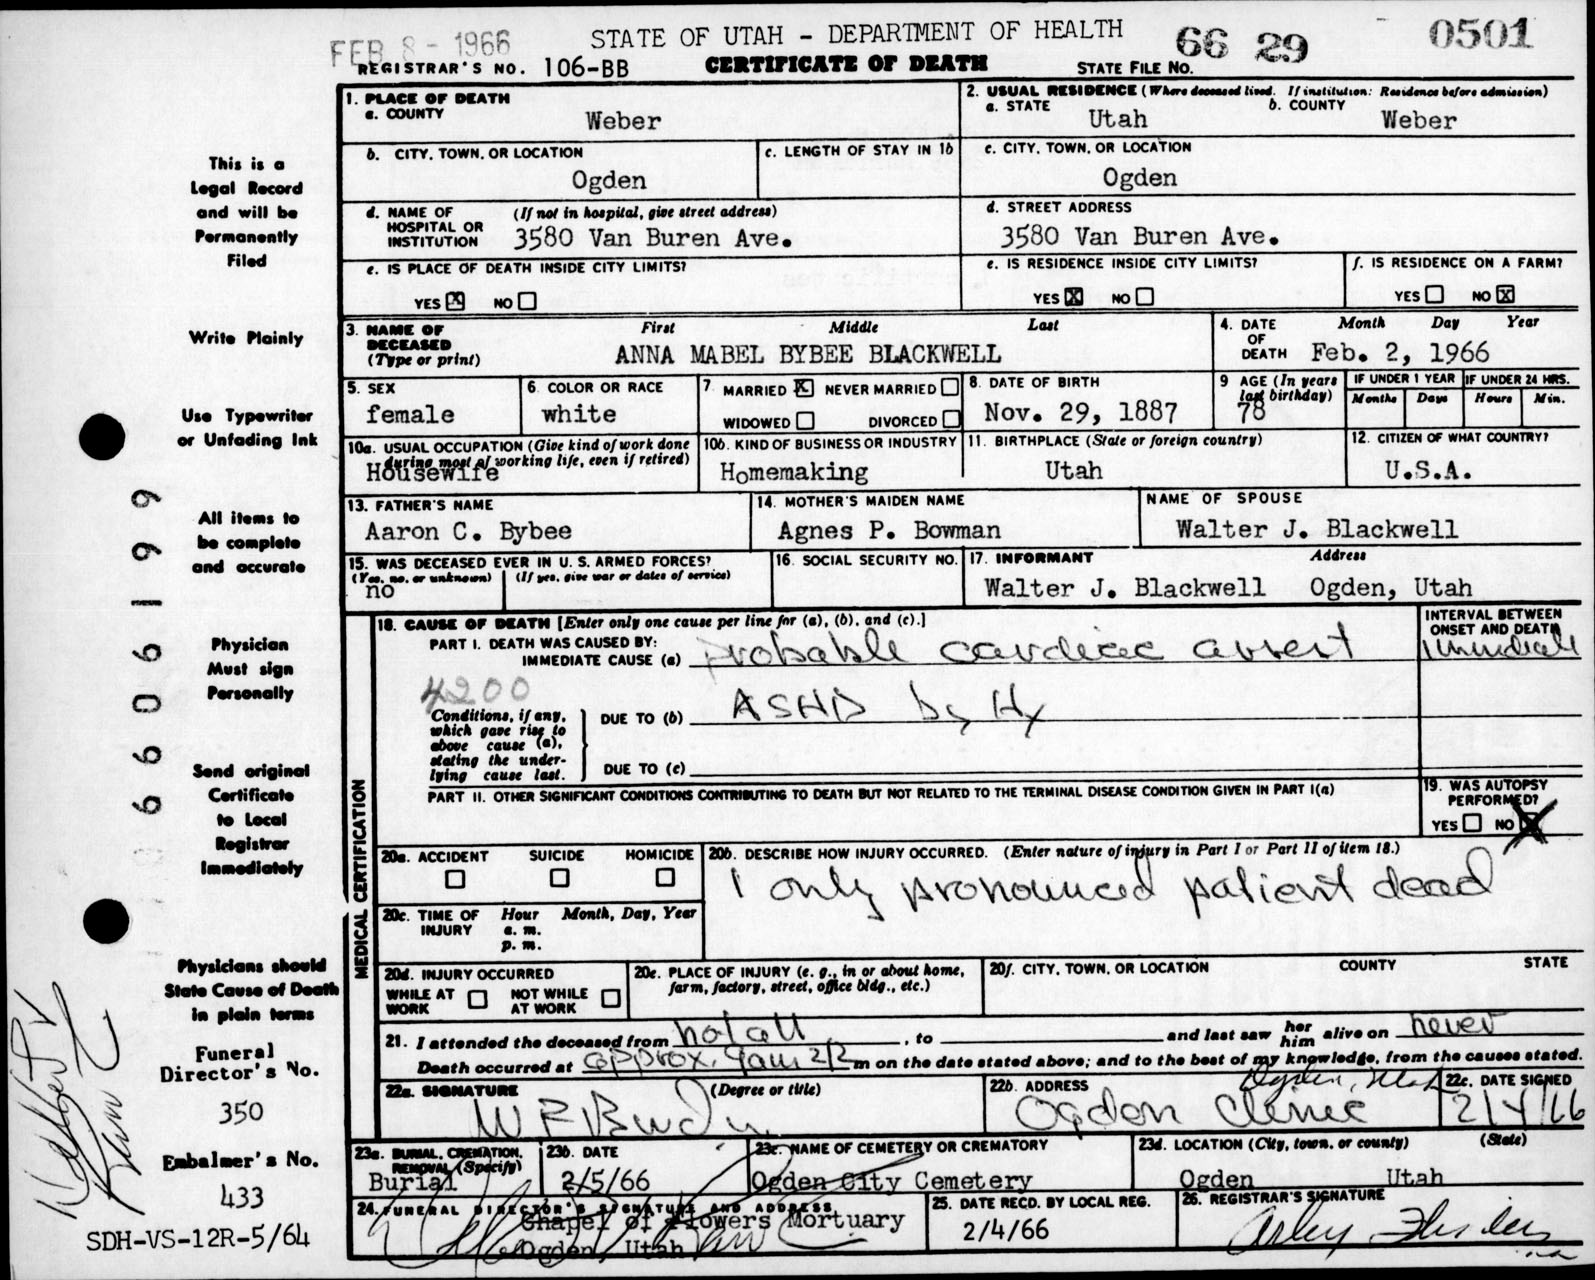 FEB 8 - 1966
STATE OF UTAH - DEPARTMENT OF HEALTH
66 29
0501
REGISTRAR'S NO. 106-BB
CERTIFICATE OF DEATH
STATE FILE NO.
1. PLACE OF DEATH
a. COUNTY
Weber
2. USUAL RESIDENCE (Where deceased lived. If institution: Residence before admission)
a. STATE
Utah
b. COUNTY
Weber
b. CITY, TOWN, OR LOCATION
Ogden
c. LENGTH OF STAY IN 1b
c. CITY, TOWN, OR LOCATION
Ogden
d. NAME OF HOSPITAL OR INSTITUTION
(If not in hospital, give street address)
3580 Van Buren Ave.
d. STREET ADDRESS
3580 Van Buren Ave.
e. IS PLACE OF DEATH INSIDE CITY LIMITS?
YES X NO
e. IS RESIDENCE INSIDE CITY LIMITS?
YES X NO
f. IS RESIDENCE ON A FARM?
YES NO X
3. NAME OF DECEASED (Type or print)
First Middle Last
ANNA MABEL BYBEE BLACKWELL
4. DATE OF DEATH
Month Day Year
Feb. 2, 1966
5. SEX
female
6. COLOR OR RACE
white
7. MARRIED X NEVER MARRIED
WIDOWED DIVORCED
8. DATE OF BIRTH
Nov. 29, 1887
9 AGE (In years last birthday)
78
IF UNDER 1 YEAR
Months Days
IF UNDER 24 HRS.
Hours Min.
10a. USUAL OCCUPATION (Give kind of work done during most of working life, even if retired)
Housewife
10b. KIND OF BUSINESS OR INDUSTRY
Homemaking
11. BIRTHPLACE (State or foreign country)
Utah
12. CITIZEN OF WHAT COUNTRY?
U.S.A.
13. FATHER'S NAME
Aaron C. Bybee
14. MOTHER'S MAIDEN NAME
Agnes P. Bowman
NAME OF SPOUSE
Walter J. Blackwell
15. WAS DECEASED EVER IN U. S. ARMED FORCES?
(Yes, no, or unknown) (If yes, give war or dates of service)
no
16. SOCIAL SECURITY NO.
17. INFORMANT Address
Walter J. Blackwell Ogden, Utah
MEDICAL CERTIFICATION
18. CAUSE OF DEATH [Enter only one cause per line for (a), (b), and (c).]
PART I. DEATH WAS CAUSED BY:
IMMEDIATE CAUSE (a) Probable cardiac arrest
INTERVAL BETWEEN ONSET AND DEATH
Immediate
4200
Conditions, if any, which gave rise to above cause (a), stating the underlying cause last.
DUE TO (b) ASHD by Hx
DUE TO (c)
PART II. OTHER SIGNIFICANT CONDITIONS CONTRIBUTING TO DEATH BUT NOT RELATED TO THE TERMINAL DISEASE CONDITION GIVEN IN PART I(a)
19. WAS AUTOPSY PERFORMED?
YES NO X
20a. ACCIDENT SUICIDE HOMICIDE
20b. DESCRIBE HOW INJURY OCCURRED. (Enter nature of injury in Part I or Part II of item 18.)
I only pronounced patient dead
20c. TIME OF INJURY Hour Month, Day, Year
a. m.
p. m.
20d. INJURY OCCURRED
WHILE AT WORK NOT WHILE AT WORK
20e. PLACE OF INJURY (e. g., in or about home, farm, factory, street, office bldg., etc.)
20f. CITY, TOWN, OR LOCATION COUNTY STATE
21. I attended the deceased from not all, to and last saw her him alive on never
Death occurred at approx. 9am 2/2 m on the date stated above; and to the best of my knowledge, from the causes stated.
22a. SIGNATURE (Degree or title)
22b. ADDRESS
Ogden Clinic Ogden, Utah
22c. DATE SIGNED
2/4/66
23a. BURIAL, CREMATION, REMOVAL (Specify)
Burial
23b. DATE
2/5/66
23c. NAME OF CEMETERY OR CREMATORY
Ogden City Cemetery
23d. LOCATION (City, town, or county) (State)
Ogden Utah
24. FUNERAL DIRECTOR'S SIGNATURE AND ADDRESS
Chapel of Flowers Mortuary
Ogden, Utah
25. DATE RECD. BY LOCAL REG.
2/4/66
26. REGISTRAR'S SIGNATURE
This is a
Legal Record
and will be
Permanently
Filed
Write Plainly
Use Typewriter
or Unfading Ink
All items to
be complete
and accurate
Physician
Must sign
Personally
Send original
Certificate
to Local
Registrar
Immediately
Physicians should
State Cause of Death
in plain terms
Funeral
Director's No.
350
Embalmer's No.
433
SDH-VS-12R-5/64